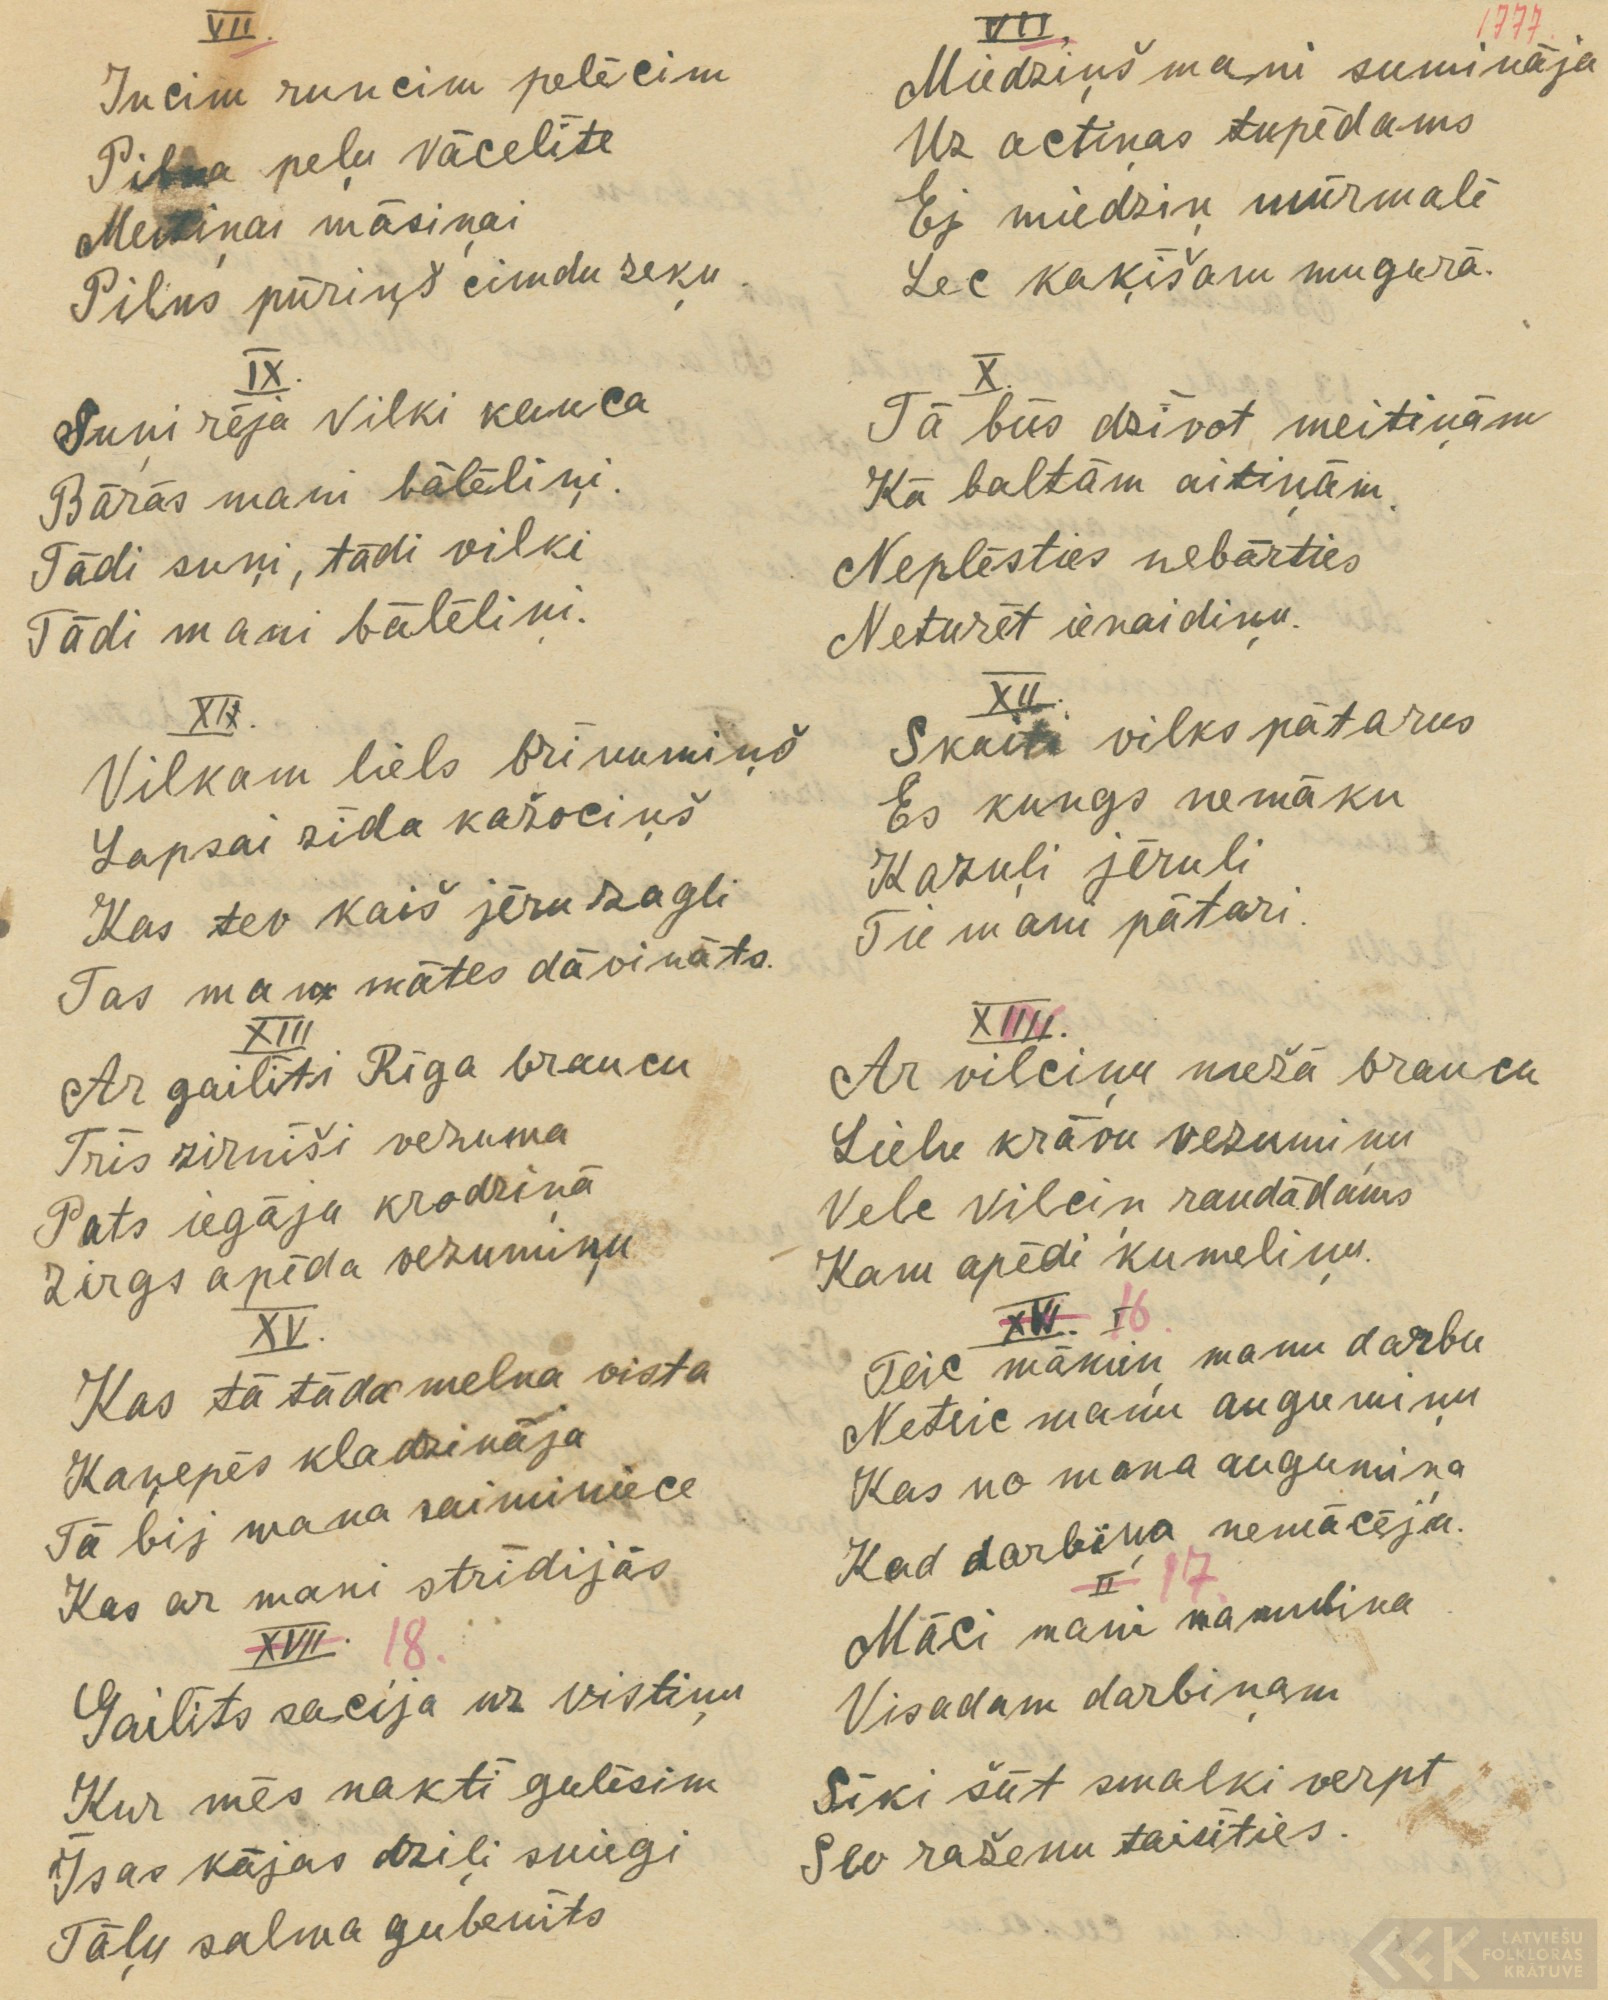 VII.
Incim runcim pelēcim
Pilna peļu vācelīte
Meitiņai māsiņai
Pilns pūriņš cimdu zeķu.
IX.
Suņi rēja vilki kauca
Bārās mani bālēliņi.
Tādi suņi, tādi vilki
Tādi mani bālēliņi.
XI.
Vilkam liels brīnumiņš
Lapsai zīda kažociņš
Kas tev kaiš jēru zagli
Tas man mātes dāvināts.
XIII
Ar gailīti Rīga braucu
Trīs zirnīši vezuma
Pats iegāja krodziņā
Zirgs apēda vezumiņu
XV.
Kas tā tāda melna vista
Kaņepēs kladzināja
Tā bij mana saiminiece
Kas ar mani strīdijās
XVII. 18.
Gailīts sacīja uz vistiņu
Kur mēs naktī gulēsim
Īsas kājas dziļi sniegi
Tāļu salma gubenīts
1777.
VII.
Miedziņš mani sumināja
Uz actiņas tupēdams
Ej miedziņ mūrmalē
Lec kaķīšam mugurā.
X.
Tā būs dzīvot meitiņām
Kā baltām aitiņām.
Neplēsties nebārties
Neturēt ienaidiņu.
XII.
Skaiti vilks pātarus
Es kungs nemāku
Kazuļi jēruli
Tie mani pātari.
XIIII.
Ar vilciņu mežā braucu
Lielu krāvu vezumiņu
Velc vilciņ raudādams
Kam apēdi kumeliņu.
XVI. I 16.
Teic māmiņ manu darbu
Neteic manu augumiņu
Kas no mana augumiņa
Kad darbiņa nemācēju.
II 17.
Māci mani mamuliņa
Visadam darbiņam
Sīki šūt smalki verpt
Sev raženu taisīties.
LATVIEŠU
FOLKLORAS
KRĀTUVE